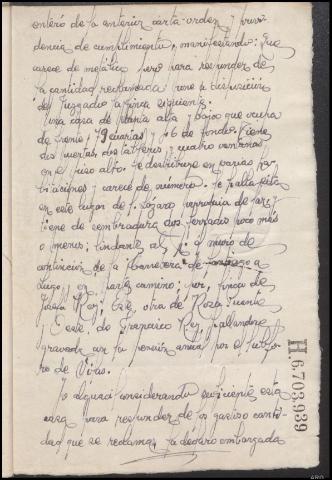 enteró de la anterior carta-orden y provi-
dencia de cumplimiento, manifestando: Que
carece de metálico pero para responder de
la cantidad reclamada pone a disposición
del Juzgado la finca siguiente:
Una casa de planta alta y bajo que ocupa
de frente 79 cuartas y 46 de fondo. Tiene
dos puertas, dos y cuatro ventanas
en el piso alto. Se distribuye en varias ha-
bitaciones y carece de número. Se halla sita
en este lugar de S. Lázaro parroquia de
Tiene de sembradura dos ferrados poco más
o menos; lindante al N. muro de
contención de la carretera de a
Lugo, en parte camino; por finca de
Josefa Rey; Este otra de Rosa Puente
y Oeste de Francisco Rey. Hallándose
gravada con la pensión anual por el
ro de
Yo alguacil considerando suficiente esta
casa para responder de la canti-
dad que se reclama, la declaro embargada
H.6.703.939